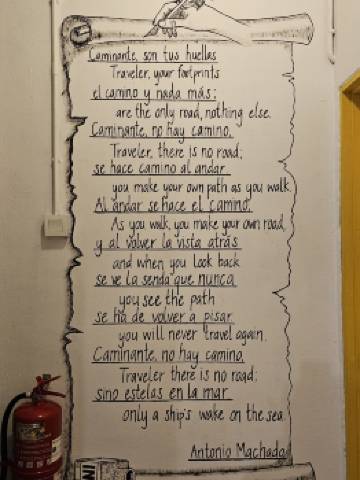 Caminante, son tus huellas
Traveler, your footprints
el camino y nada más;
are the only road, nothing else.
Caminante, no hay camino,
Traveler, there is no road;
se hace camino al andar
you make your own path as you walk.
Al andar se hace el camino,
As you walk, you make your own road,
y al volver la vista atrás
and when you look back
se ve la senda que nunca
you see the path
se ha de volver a pisar.
you will never travel again.
Caminante, no hay camino,
Traveler there is no road;
sino estelas en la mar.
only a ship's wake on the sea.
Antonio Machado